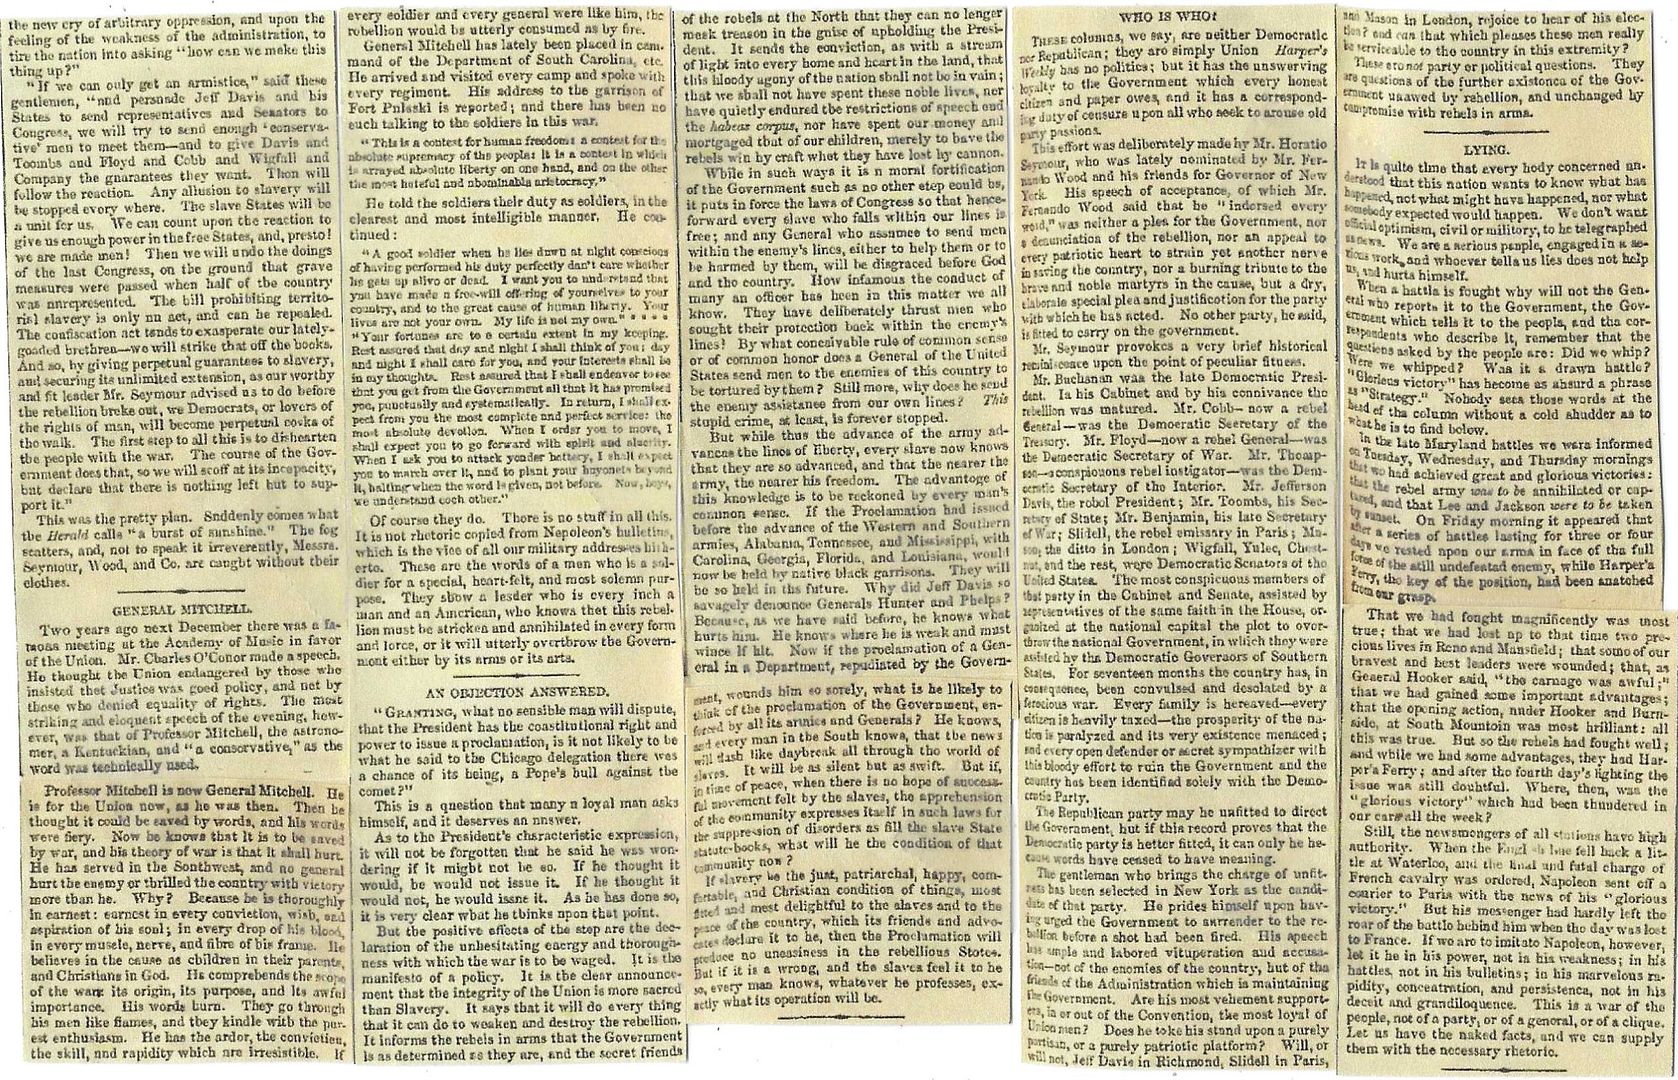 the new cry of arbitrary oppression, and upon the
feeling of the weakness of the administration, to
tire the nation into asking "how can we make this
thing up?"
"If we can only get an armistice," said these
gentlemen, "and persuade Jeff Davis and his
States to send representatives and Senators to
Congress, we will try to send enough 'conserva-
tive' men to meet them—and to give Davis and
Toombs and Floyd and Cobb and Wigfall and
Company the guarantees they want. Then will
follow the reaction. Any allusion to slavery will
be stopped every where. The slave States will be
a unit for us. We can count upon the reaction to
give us enough power in the free States, and, presto!
we are made men! Then we will undo the doings
of the last Congress, on the ground that grave
measures were passed when half of the country
was unrepresented. The bill prohibiting territo-
rial slavery is only an act, and can be repealed.
The confiscation act tends to exasperate our lately-
goaded brethren—we will strike that off the books.
And so, by giving perpetual guarantees to slavery,
and securing its unlimited extension, as our worthy
and fit leader Mr. Seymour advised us to do before
the rebellion broke out, we Democrats, or lovers of
the rights of man, will become perpetual cocks of
the walk. The first step to all this is to dishearten
the people with the war. The course of the Gov-
ernment does that, so we will scoff at its incapacity,
but declare that there is nothing left but to sup-
port it."
This was the pretty plan. Suddenly comes what
the Herald calls "a burst of sunshine." The fog
scatters, and, not to speak it irreverently, Messrs.
Seymour, Wood, and Co. are caught without their
clothes.
GENERAL MITCHELL.
Two years ago next December there was a fa-
mous meeting at the Academy of Music in favor
of the Union. Mr. Charles O'Conor made a speech.
He thought the Union endangered by those who
insisted that Justice was good policy, and not by
those who denied equality of rights. The most
striking and eloquent speech of the evening, how-
ever, was that of Professor Mitchell, the astrono-
mer, a Kentuckian, and "a conservative," as the
word was technically used.
Professor Mitchell is now General Mitchell. He
is for the Union now, as he was then. Then he
thought it could be saved by words, and his words
were fiery. Now he knows that it is to be saved
by war, and his theory of war is that it shall hurt.
He has served in the Southwest, and no general
hurt the enemy or thrilled the country with victory
more than he. Why? Because he is thoroughly
in earnest: earnest in every conviction, wish, and
aspiration of his soul; in every drop of his blood,
in every muscle, nerve, and fibre of his frame. He
believes in the cause as children in their parents,
and Christians in God. He comprehends the scope
of the war: its origin, its purpose, and its awful
importance. His words burn. They go through
his men like flames, and they kindle with the pur-
est enthusiasm. He has the ardor, the conviction,
the skill, and rapidity which are irresistible. If
every soldier and every general were like him, the
rebellion would be utterly consumed as by fire.
General Mitchell has lately been placed in com-
mand of the Department of South Carolina, etc.
He arrived and visited every camp and spoke with
every regiment. His address to the garrison of
Fort Pulaski is reported; and there has been no
such talking to the soldiers in this war.
"This is a contest for human freedom: a contest for the
absolute supremacy of the people: it is a contest in which
is arrayed absolute liberty on one hand, and on the other
the most hateful and abominable aristocracy."
He told the soldiers their duty as soldiers, in the
clearest and most intelligible manner. He con-
tinued:
"A good soldier when he lies down at night conscious
of having performed his duty perfectly don't care whether
he gets up alive or dead. I want you to understand that
you have made a free-will offering of yourselves to your
country, and to the great cause of human liberty. Your
lives are not your own. My life is not my own." * * * * *
"Your fortunes are to a certain extent in my keeping.
Rest assured that day and night I shall think of you; day
and night I shall care for you, and your interests shall be
in my thoughts. Rest assured that I shall endeavor to see
that you get from the Government all that it has promised
you, punctually and systematically. In return, I shall ex-
pect from you the most complete and perfect service: the
most absolute devotion. When I order you to move, I
shall expect you to go forward with spirit and alacrity.
When I ask you to attack yonder battery, I shall expect
you to march over it, and to plant your bayonets beyond
it, halting when the word is given, not before. Now, boys,
we understand each other."
Of course they do. There is no stuff in all this.
It is not rhetoric copied from Napoleon's bulletins,
which is the vice of all our military addresses hith-
erto. These are the words of a man who is a sol-
dier for a special, heart-felt, and most solemn pur-
pose. They show a leader who is every inch a
man and an American, who knows that this rebel-
lion must be stricken and annihilated in every form
and force, or it will utterly overthrow the Govern-
ment either by its arms or its arts.
AN OBJECTION ANSWERED.
"GRANTING, what no sensible man will dispute,
that the President has the constitutional right and
power to issue a proclamation, is it not likely to be
what he said to the Chicago delegation there was
a chance of its being, a Pope's bull against the
comet?"
This is a question that many a loyal man asks
himself, and it deserves an answer.
As to the President's characteristic expression,
it will not be forgotten that he said he was won-
dering if it might not be so. If he thought it
would, he would not issue it. If he thought it
would not, he would issue it. As he has done so,
it is very clear what he thinks upon that point.
But the positive effects of the step are the dec-
laration of the unhesitating energy and thorough-
ness with which the war is to be waged. It is the
manifesto of a policy. It is the clear announce-
ment that the integrity of the Union is more sacred
than Slavery. It says that it will do every thing
that it can do to weaken and destroy the rebellion.
It informs the rebels in arms that the Government
is as determined as they are, and the secret friends
of the rebels at the North that they can no longer
mask treason in the guise of upholding the Presi-
dent. It sends the conviction, as with a stream
of light into every home and heart in the land, that
this bloody agony of the nation shall not be in vain;
that we shall not have spent these noble lives, nor
have quietly endured the restrictions of speech and
the habeas corpus, nor have spent our money and
mortgaged that of our children, merely to have the
rebels win by craft what they have lost by cannon.
While in such ways it is a moral fortification
of the Government such as no other step could be,
it puts in force the laws of Congress so that hence-
forward every slave who falls within our lines is
free; and any General who assumes to send men
within the enemy's lines, either to help them or to
be harmed by them, will be disgraced before God
and the country. How infamous the conduct of
many an officer has been in this matter we all
know. They have deliberately thrust men who
sought their protection back within the enemy's
lines! By what conceivable rule of common sense
or of common honor does a General of the United
States send men to the enemies of this country to
be tortured by them? Still more, why does he send
the enemy assistance from our own lines? This
stupid crime, at least, is forever stopped.
But while thus the advance of the army ad-
vances the lines of liberty, every slave now knows
that they are so advanced, and that the nearer the
army, the nearer his freedom. The advantage of
this knowledge is to be reckoned by every man's
common sense. If the Proclamation had issued
before the advance of the Western and Southern
armies, Alabama, Tennessee, and Mississippi, with
Carolina, Georgia, Florida, and Louisiana, would
now be held by native black garrisons. They will
be so held in the future. Why did Jeff Davis so
savagely denounce Generals Hunter and Phelps?
Because, as we have said before, he knows what
hurts him. He knows where he is weak and must
wince if hit. Now if the proclamation of a Gen-
eral in a Department, repudiated by the Govern-
ment, wounds him so sorely, what is he likely to
think of the proclamation of the Government, en-
forced by all its armies and Generals? He knows,
and every man in the South knows, that the news
will flash like daybreak all through the world of
slaves. It will be as silent but as swift. But if,
in time of peace, when there is no hope of success-
ful movement felt by the slaves, the apprehension
of the community expresses itself in such laws for
the suppression of disorders as fill the slave State
statute-books, what will be the condition of that
community now?
If slavery be the just, patriarchal, happy, com-
fortable, and Christian condition of things, most
fitted and most delightful to the slaves and to the
peace of the country, which its friends and advo-
cates declare it to be, then the Proclamation will
produce no uneasiness in the rebellious States.
But if it is a wrong, and the slaves feel it to be
so, every man knows, whatever he professes, ex-
actly what its operation will be.
WHO IS WHO?
THESE columns, we say, are neither Democratic
nor Republican; they are simply Union Harper's
Weekly has no politics; but it has the unswerving
loyalty to the Government which every honest
citizen and paper owes, and it has a correspond-
ing duty of censure upon all who seek to arouse old
party passions.
This effort was deliberately made by Mr. Horatio
Seymour, who was lately nominated by Mr. Fer-
nando Wood and his friends for Governor of New
York. His speech of acceptance, of which Mr.
Fernando Wood said that he "indorsed every
word," was neither a plea for the Government, nor
a denunciation of the rebellion, nor an appeal to
every patriotic heart to strain yet another nerve
in saving the country, nor a burning tribute to the
brave and noble martyrs in the cause, but a dry,
elaborate special plea and justification for the party
with which he has acted. No other party, he said,
is fitted to carry on the government.
Mr. Seymour provokes a very brief historical
reminiscence upon the point of peculiar fitness.
Mr. Buchanan was the late Democratic Presi-
dent. In his Cabinet and by his connivance the
rebellion was matured. Mr. Cobb—now a rebel
General—was the Democratic Secretary of the
Treasury. Mr. Floyd—now a rebel General—was
the Democratic Secretary of War. Mr. Thomp-
son—a conspicuous rebel instigator—was the Dem-
ocratic Secretary of the Interior. Mr. Jefferson
Davis, the rebel President; Mr. Toombs, his Sec-
retary of State; Mr. Benjamin, his late Secretary
of War; Slidell, the rebel emissary in Paris; Ma-
son, the ditto in London; Wigfall, Yulee, Chest-
nut, and the rest, were Democratic Senators of the
United States. The most conspicuous members of
that party in the Cabinet and Senate, assisted by
representatives of the same faith in the House, or-
ganized at the national capital the plot to over-
throw the national Government, in which they were
assisted by the Democratic Governors of Southern
States. For seventeen months the country has, in
consequence, been convulsed and desolated by a
ferocious war. Every family is bereaved—every
citizen is heavily taxed—the prosperity of the na-
tion is paralyzed and its very existence menaced;
and every open defender or secret sympathizer with
this bloody effort to ruin the Government and the
country has been identified solely with the Demo-
cratic Party.
The Republican party may be unfitted to direct
the Government, but if this record proves that the
Democratic party is better fitted, it can only be be-
cause words have ceased to have meaning.
The gentleman who brings the charge of unfit-
ness has been selected in New York as the candi-
date of that party. He prides himself upon hav-
ing urged the Government to surrender to the re-
bellion before a shot had been fired. His speech
has ample and labored vituperation and accusa-
tion—not of the enemies of the country, but of the
friends of the Administration which is maintaining
the Government. Are his most vehement support-
ers, in or out of the Convention, the most loyal of
Union men? Does he take his stand upon a purely
partisan, or a purely patriotic platform? Will, or
will not, Jeff Davis in Richmond, Slidell in Paris,
and Mason in London, rejoice to hear of his elec-
tion? and can that which pleases these men really
be serviceable to the country in this extremity?
These are not party or political questions. They
are questions of the further existence of the Gov-
ernment unawed by rebellion, and unchanged by
compromise with rebels in arms.
LYING.
It is quite time that every body concerned un-
derstood that this nation wants to know what has
happened, not what might have happened, nor what
somebody expected would happen. We don't want
official optimism, civil or military, to be telegraphed
as news. We are a serious people, engaged in a se-
rious work, and whoever tells us lies does not help
us, and hurts himself.
When a battle is fought why will not the Gen-
eral who reports it to the Government, the Gov-
ernment which tells it to the people, and the cor-
respondents who describe it, remember that the
questions asked by the people are: Did we whip?
Were we whipped? Was it a drawn battle?
"Glorious victory" has become as absurd a phrase
as "Strategy." Nobody sees those words at the
head of the column without a cold shudder as to
what he is to find below.
In the late Maryland battles we were informed
on Tuesday, Wednesday, and Thursday mornings
that we had achieved great and glorious victories:
that the rebel army was to be annihilated or cap-
tured, and that Lee and Jackson were to be taken
by sunset. On Friday morning it appeared that
after a series of battles lasting for three or four
days we rested upon our arms in face of the full
force of the still undefeated enemy, while Harper's
Ferry, the key of the position, had been snatched
from our grasp.
That we had fought magnificently was most
true; that we had lost up to that time two pre-
cious lives in Reno and Mansfield; that some of our
bravest and best leaders were wounded; that, as
General Hooker said, "the carnage was awful;"
that we had gained some important advantages;
that the opening action, under Hooker and Burn-
side, at South Mountain was most brilliant: all
this was true. But so the rebels had fought well;
and while we had some advantages, they had Har-
per's Ferry; and after the fourth day's fighting the
issue was still doubtful. Where, then, was the
"glorious victory" which had been thundered in
our ears all the week?
Still, the newsmongers of all stations have high
authority. When the English line fell back a lit-
tle at Waterloo, and the final and fatal charge of
French cavalry was ordered, Napoleon sent off a
courier to Paris with the news of his "glorious
victory." But his messenger had hardly left the
roar of the battle behind him when the day was lost
to France. If we are to imitate Napoleon, however,
let it be in his power, not in his weakness; in his
battles, not in his bulletins; in his marvelous ra-
pidity, concentration, and persistence, not in his
deceit and grandiloquence. This is a war of the
people, not of a party, or of a general, or of a clique.
Let us have the naked facts, and we can supply
them with the necessary rhetoric.